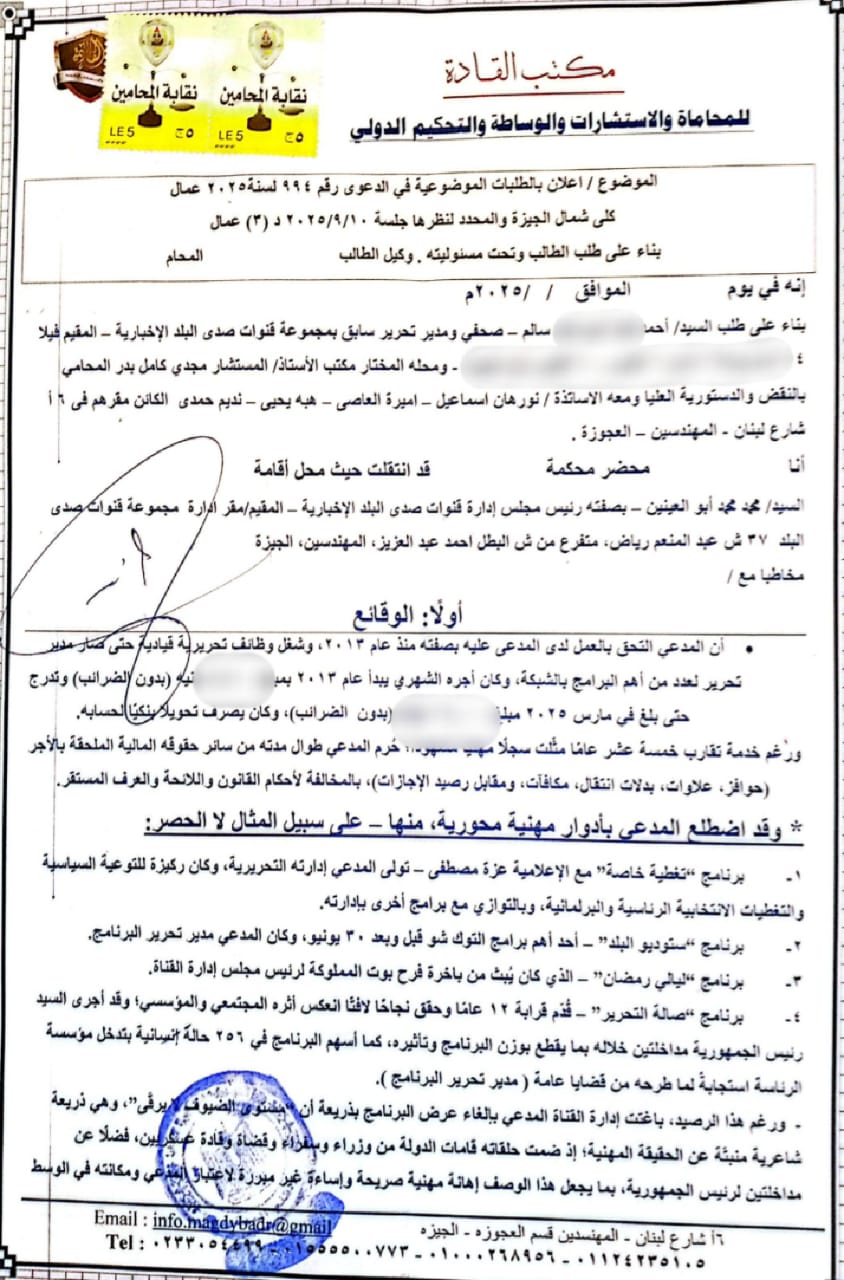 نقابة المحامين
LE5 ج٥
نقابة المحامين
LE5 ج٥
مكتب القادة
للمحاماة والاستشارات والوساطة والتحكيم الدولي
الموضوع / اعلان بالطلبات الموضوعية في الدعوى رقم ٩٩٤ لسنة ٢٠٢٥ عمال
كلى شمال الجيزة والمحدد لنظرها جلسة ٢٠٢٥/٩/١٠ د (٣) عمال
بناء على طلب الطالب وتحت مسئوليته . وكيل الطالب المحام
إنه في يوم الموافق / /٢٠٢٥م
بناء على طلب السيد/ أحمد سالم – صحفي ومدير تحرير سابق بمجموعة قنوات صدى البلد الإخبارية – المقيم فيلا
٤ - ومحله المختار مكتب الأستاذ/ المستشار مجدي كامل بدر المحامي
بالنقض والدستورية العليا ومعه الاساتذة / نورهان اسماعيل – اميرة العاصى – هبه يحيى – نديم حمدى الكائن مقرهم فى ٦ أ
شارع لبنان - المهندسين – العجوزة .
أنا محضر محكمة قد انتقلت حيث محل أقامة
السيد/ محمد محمد أبو العينين – بصفته رئيس مجلس إدارة قنوات صدى البلد الإخبارية – المقيم/مقر ادارة مجموعة قنوات صدى
البلد ٣٧ ش عبد المنعم رياض، متفرع من ش البطل احمد عبد العزيز، المهندسين، الجيزة
مخاطبا مع /
أولًا: الوقائع
• أن المدعي التحق بالعمل لدى المدعى عليه بصفته منذ عام ٢٠١٣، وشغل وظائف تحريرية قيادية حتى صار مدير
تحرير لعدد من أهم البرامج بالشبكة، وكان أجره الشهري يبدأ عام ٢٠١٣ (بدون الضرائب) وتدرج
حتى بلغ في مارس ٢٠٢٥ مبلغ (بدون الضرائب)، وكان يصرف تحويلًا بنكيًا لحسابه.
ورغم خدمة تقارب خمسة عشر عامًا مثّلت سجلًا مهنيًا حُرم المدعي طوال مدته من سائر حقوقه المالية الملحقة بالأجر
(حوافز، علاوات، بدلات انتقال، مكافآت، ومقابل رصيد الإجازات)، بالمخالفة لأحكام القانون واللائحة والعرف المستقر.
* وقد اضطلع المدعي بأدوار مهنية محورية، منها – على سبيل المثال لا الحصر:
١- برنامج “تغطية خاصة” مع الإعلامية عزة مصطفى – تولى المدعي إدارته التحريرية، وكان ركيزة للتوعية السياسية
والتغطيات الانتخابية الرئاسية والبرلمانية، وبالتوازي مع برامج أخرى بإدارته.
٢- برنامج “ستوديو البلد” – أحد أهم برامج التوك شو قبل وبعد ٣٠ يونيو، وكان المدعي مدير تحرير البرنامج.
٣- برنامج “ليالي رمضان” – الذي كان يُبث من باخرة فرح بوت المملوكة لرئيس مجلس إدارة القناة.
٤- برنامج “صالة التحرير” – قُدّم قرابة ١٢ عامًا وحقق نجاحًا لافتًا انعكس أثره المجتمعي والمؤسسي؛ وقد أجرى السيد
رئيس الجمهورية مداخلتين خلاله بما يقطع بوزن البرنامج وتأثيره، كما أسهم البرنامج في ٢٥٦ حالة إنسانية بتدخل مؤسسة
الرئاسة استجابةً لما طرحه من قضايا عامة ( مدير تحرير البرنامج ).
- ورغم هذا الرصيد، باغتت إدارة القناة المدعي بإلغاء عرض البرنامج بذريعة أن “مستوى الضيوف لا يرقى”، وهي ذريعة
شاعرية منبتّة عن الحقيقة المهنية؛ إذ ضمت حلقاته قامات الدولة من وزراء وسفراء وقضاة وقادة عسكريين، فضلًا عن
مداخلتين لرئيس الجمهورية، بما يجعل هذا الوصف إهانة مهنية صريحة وإساءة غير مبررة لاعتبار المدعي ومكانته في الوسط
٦أ شارع لبنان - المهندسين قسم العجوزه - الجيزه
Email : info.magdybadr@gmail
Tel : ٠٢٣٣٠٥٤٤٩٩ - ٠١٥٥٥٥٠٠٧٧٣ - ٠١٠٠٠٢٦٨٩٥٦ - ٠١١٢٤٢٣٥١٠٥